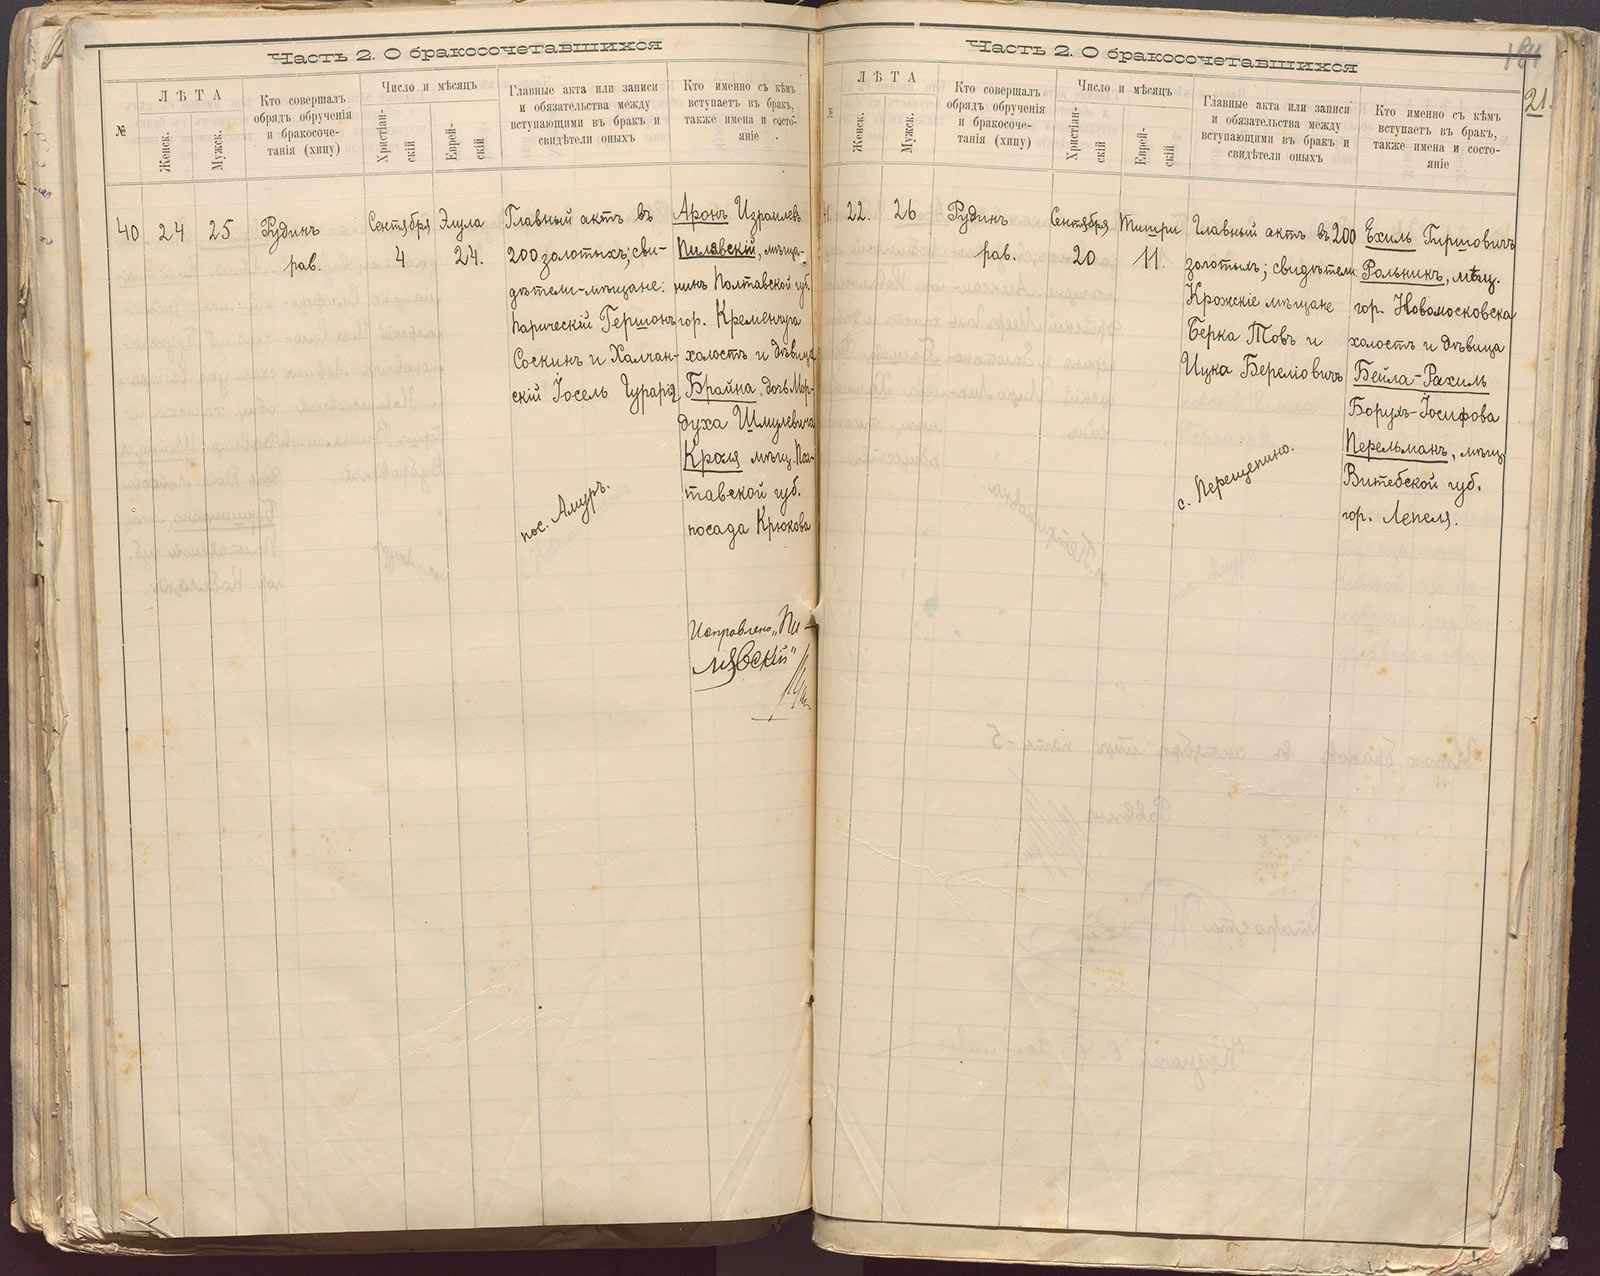 Часть 2. О бракосочетавшихся
№
ЛѢТА
Женск.
Мужск.
Кто совершалъ
обрядъ обрученія
и бракосоче-
танія (хипу)
Число и мѣсяцъ
Христіан-
скій
Еврей-
скій
Главные акта или записи
и обязательства между
вступающими въ бракъ и
свидѣтели оныхъ
Кто именно съ кѣмъ
вступаетъ въ бракъ,
также имена и состо-
яніе
40
24
25
Рудинъ
рав.
Сентября
4
Элула
24.
Главный актъ въ
200 золотыхъ; сви-
дѣтели-мѣщане:
Паричскій Гершонъ
Соскинъ и Халчан-
скій Іосель Гурарій
пос. Амуръ.
Аронъ Израилевъ
Пилявскій, мѣща-
нинъ Полтавской губ.
гор. Кременчуга
холостъ и дѣвица
Брайна, дочь Мор-
духа Шмулевича
Кроля мѣщ. Пол-
тавской губ.
посада Крюкова
Исправлено „Пи-
лявскій"
Часть 2. О бракосочетавшихся
184
21.
№
ЛѢТА
Женск.
Мужск.
Кто совершалъ
обрядъ обрученія
и бракосоче-
танія (хипу)
Число и мѣсяцъ
Христіан-
скій
Еврей-
скій
Главные акта или записи
и обязательства между
вступающими въ бракъ и
свидѣтели оныхъ
Кто именно съ кѣмъ
вступаетъ въ бракъ,
также имена и состо-
яніе
41.
22.
26
Рудинъ
рав.
Сентября
20
Тишри
11.
Главный актъ въ 200
золотыхъ; свидѣтели
Крожскіе мѣщане
Берка Товъ и
Ицка Береліовичъ
с. Перещепино.
Ехиль Гиршовичъ
Рольникъ, мѣщ.
гор. Новомосковска
холостъ и дѣвица
Бейла-Рахиль
Борухъ-Іосифова
Перельманъ, мѣщ.
Витебской губ.
гор. Лепеля.